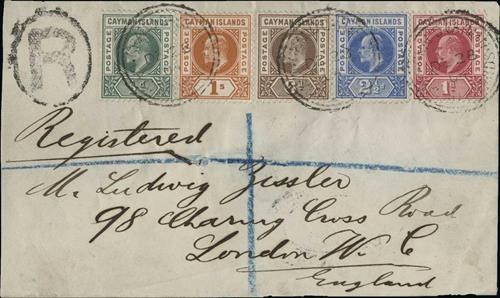 R
CAYMAN ISLANDS CAYMAN ISLANDS CAYMAN ISLANDS CAYMAN ISLANDS CAYMAN ISLANDS
POSTAGE POSTAGE POSTAGE POSTAGE POSTAGE POSTAGE POSTAGE POSTAGE POSTAGE POSTAGE
1s 2½d 1d
Registered
Mr. Ludwig Zissler
98 Charing Cross Road
London W. C
England